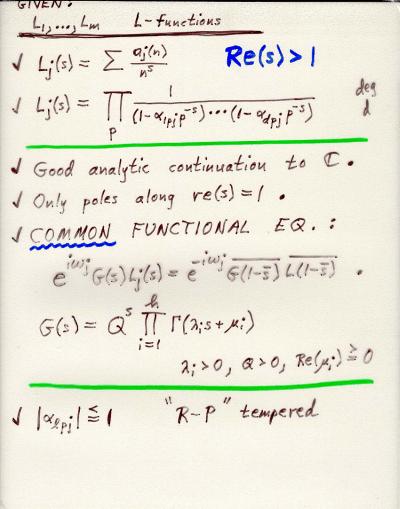 GIVEN:
L₁,...,Lₘ L-functions
✓ Lⱼ(s) = ∑ aⱼ(n)/nˢ Re(s)>1
✓ Lⱼ(s) = ∏ₚ 1/((1-α₁ₚⱼ p⁻ˢ)···(1-α_dpj p⁻ˢ)) deg d
✓ Good analytic continuation to ℂ.
✓ Only poles along re(s)=1.
✓ COMMON FUNCTIONAL EQ.:
e^{iωⱼ} G(s)Lⱼ(s) = e^{-iωⱼ} \overline{G(1-\bar{s})} \overline{L(1-\bar{s})}.
G(s) = Qˢ ∏_{i=1}^{h} Γ(λᵢs+μᵢ)
λᵢ>0, Q>0, Re(μᵢ) ≧ 0
✓ |α_{ℓpj}| ≦ 1 "R-P" tempered